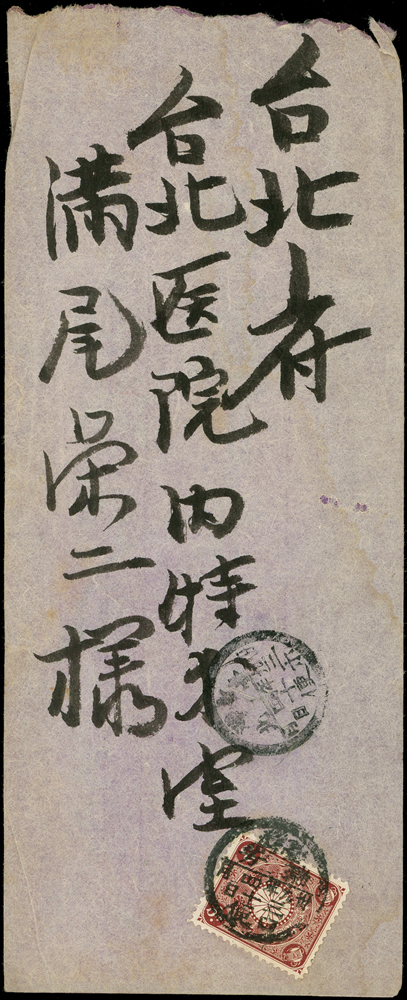 台北府
台北医院内特別室
満尾栄二様